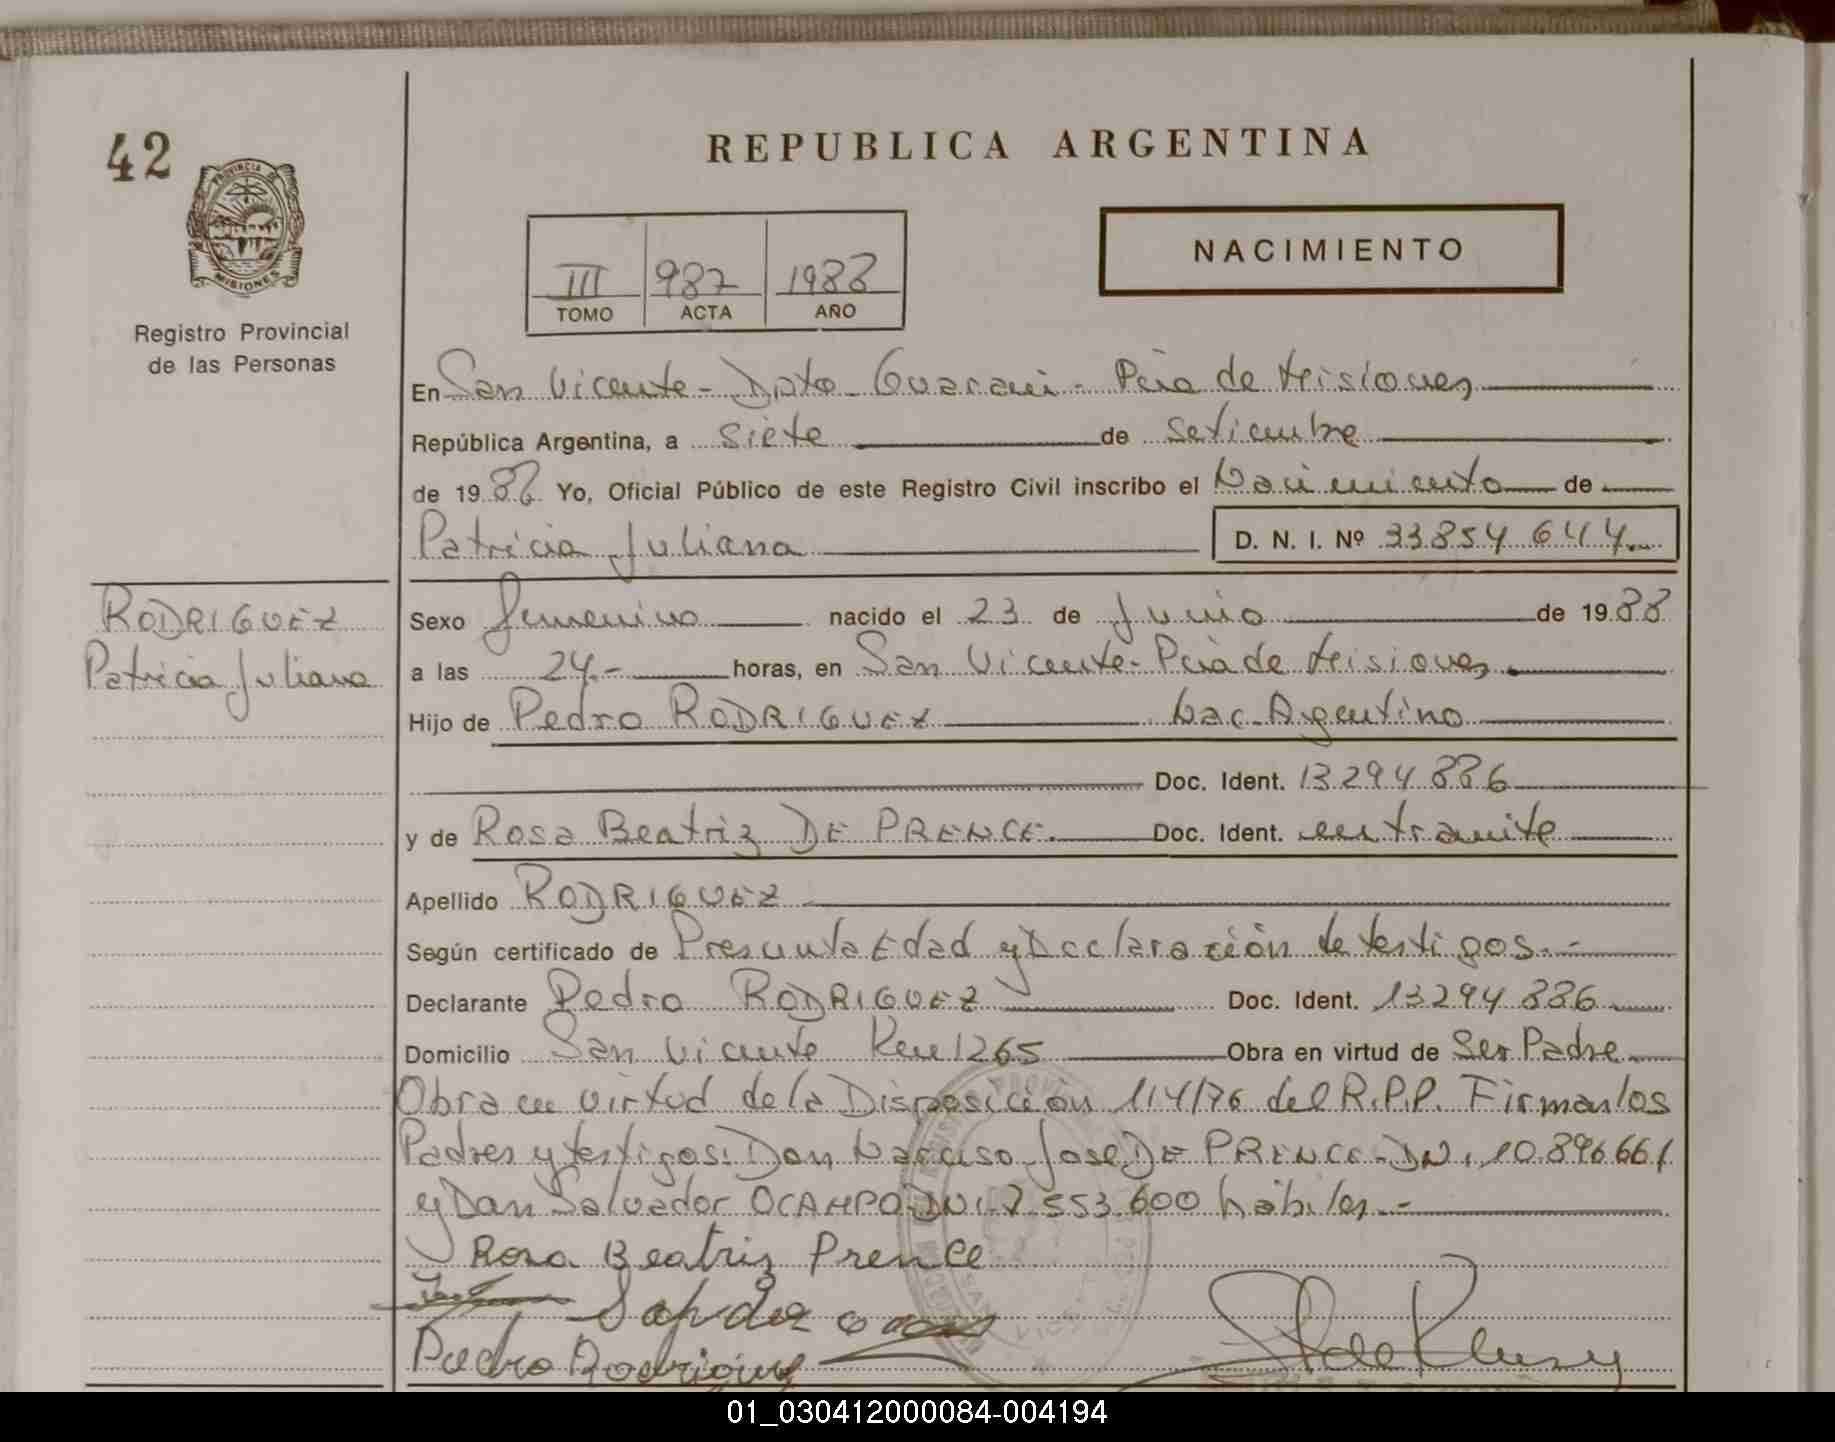 42
PROVINCIA DE
MISIONES
Registro Provincial
de las Personas
REPUBLICA ARGENTINA
III 987 1988
TOMO ACTA AÑO
NACIMIENTO
En San Vicente - Dpto Guarani - Pcia de Misiones
República Argentina, a siete de setiembre
de 1988 Yo, Oficial Público de este Registro Civil inscribo el Nacimiento de
Patricia Juliana D. N. I. Nº 33854 644
RODRIGUEZ
Patricia Juliana
Sexo femenino nacido el 23 de Junio de 1988
a las 24.- horas, en San Vicente - Pcia de Misiones
Hijo de Pedro RODRIGUEZ Nac. Argentino
Doc. Ident. 13294886
y de Rosa Beatriz DE PRENCE. Doc. Ident. en tramite
Apellido RODRIGUEZ
Según certificado de Presunta Edad y Declaración de testigos.-
Declarante Pedro RODRIGUEZ Doc. Ident. 13294886
Domicilio San Vicente Km 1265 Obra en virtud de Ser Padre
Obra en virtud de la Disposición 114/76 del R.P.P. Firman los
Padres y testigos: Don Narciso Jose DE PRENCE - DNI 10.896.661
y Don Salvador OCAMPO DNI 7.553.600 hábiles.-
Rosa Beatriz Prence
Pedro Rodriguez
01_030412000084-004194